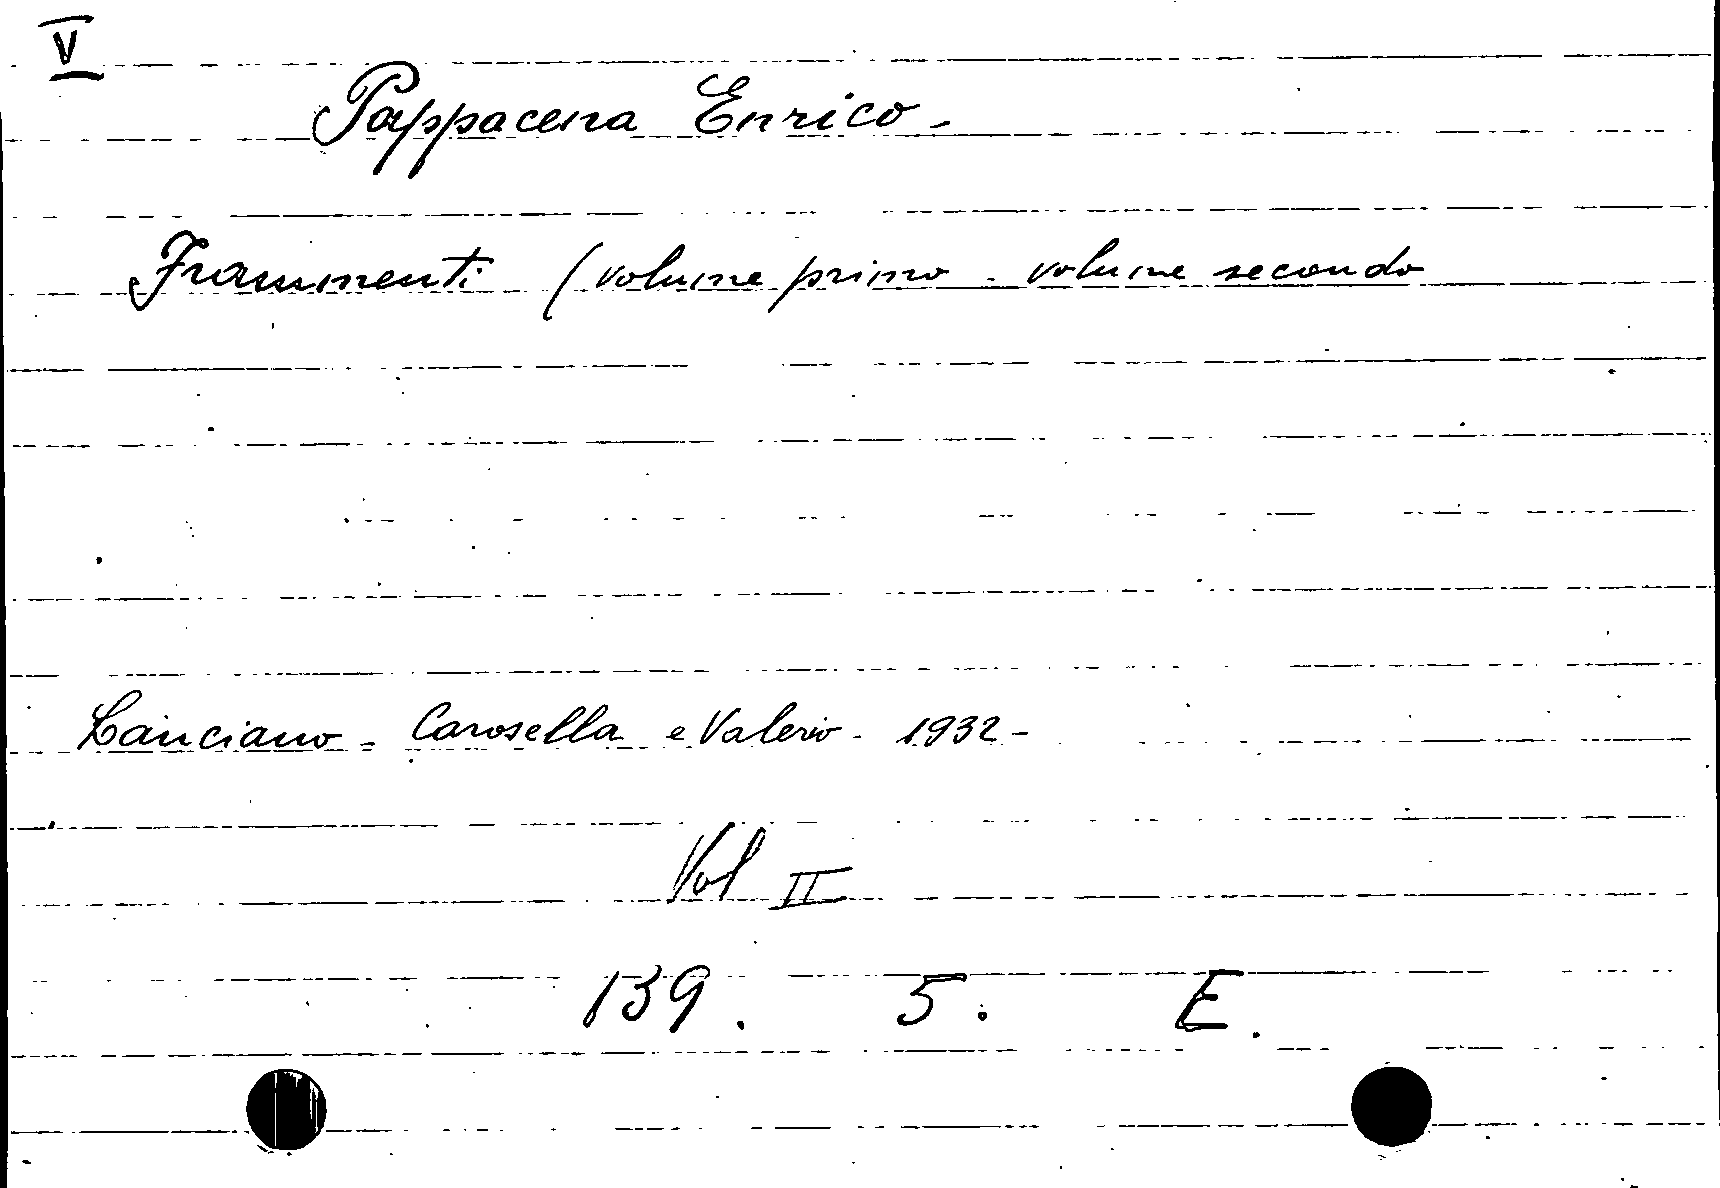 V
Pappacena Enrico -
Frammenti (volume primo - volume secondo
Lanciano - Carosella e Valerio - 1932 -
Vol II
139. 5. E.